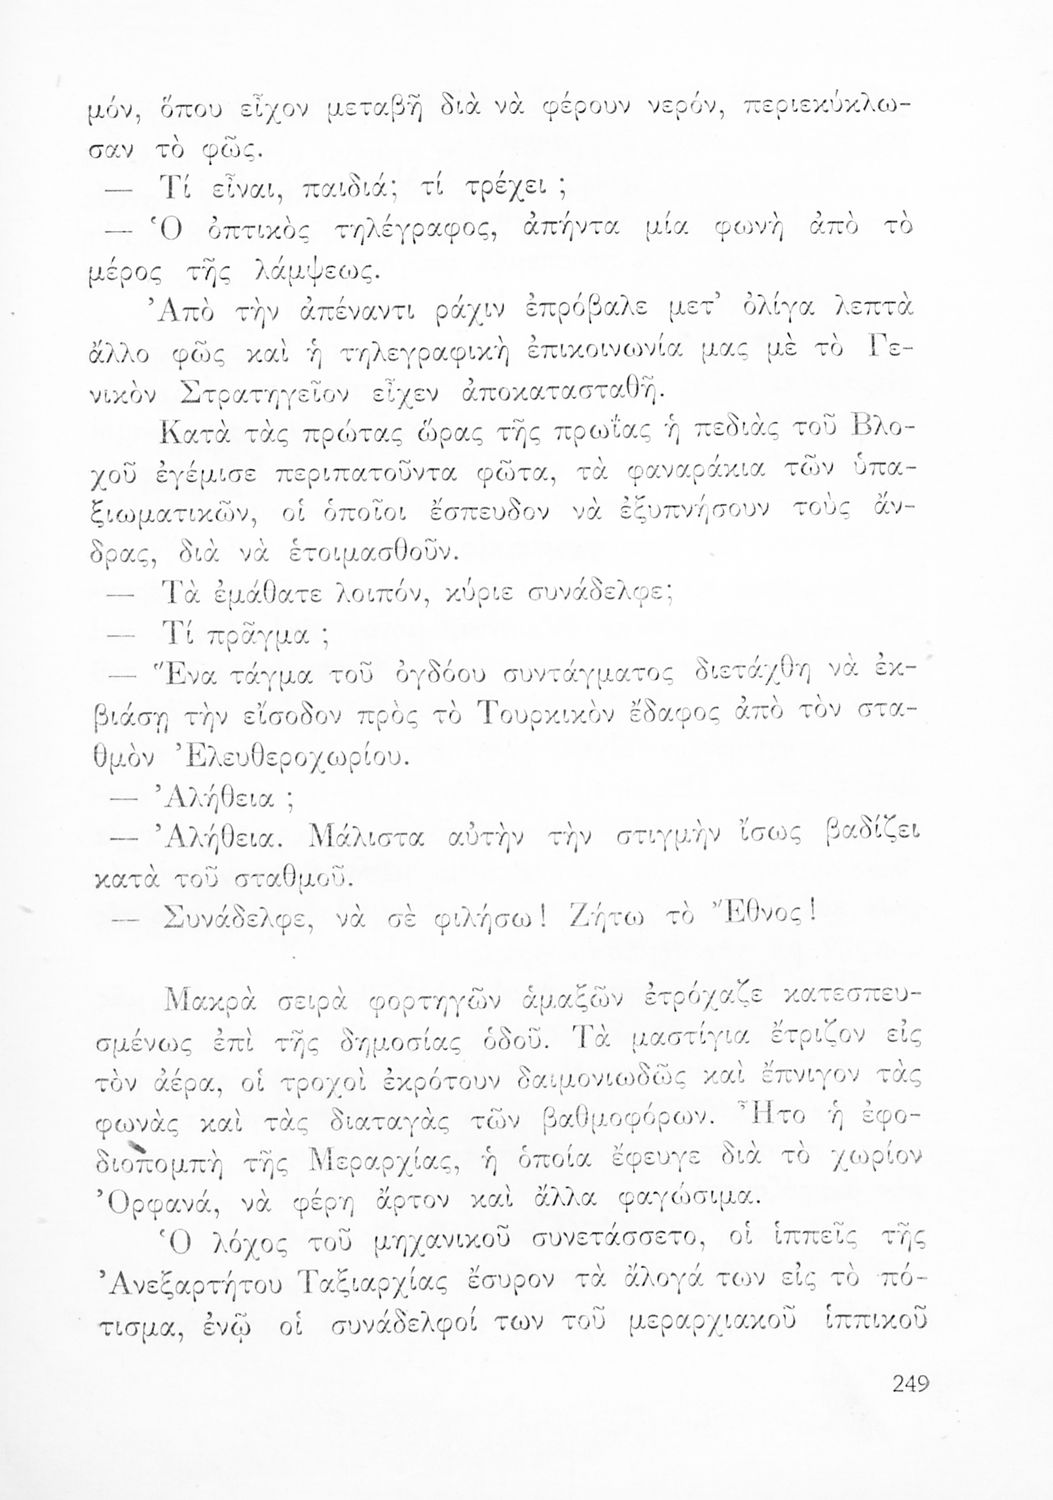 μόν, ὅπου εἶχον μεταβῆ διὰ νὰ φέρουν νερόν, περιεκύκλω-
σαν τὸ φῶς.
— Τί εἶναι, παιδιά; τί τρέχει ;
— Ὁ ὀπτικὸς τηλέγραφος, ἀπήντα μία φωνὴ ἀπὸ τὸ
μέρος τῆς λάμψεως.
Ἀπὸ τὴν ἀπέναντι ράχιν ἐπρόβαλε μετ’ ὀλίγα λεπτὰ
ἄλλο φῶς καὶ ἡ τηλεγραφικὴ ἐπικοινωνία μας μὲ τὸ Γε-
νικὸν Στρατηγεῖον εἶχεν ἀποκατασταθῆ.
Κατὰ τὰς πρώτας ὥρας τῆς πρωΐας ἡ πεδιὰς τοῦ Βλο-
χοῦ ἐγέμισε περιπατοῦντα φῶτα, τὰ φαναράκια τῶν ὑπα-
ξιωματικῶν, οἱ ὁποῖοι ἔσπευδον νὰ ἐξυπνήσουν τοὺς ἄν-
δρας, διὰ νὰ ἑτοιμασθοῦν.
— Τὰ ἐμάθατε λοιπόν, κύριε συνάδελφε;
— Τί πρᾶγμα ;
— Ἕνα τάγμα τοῦ ὀγδόου συντάγματος διετάχθη νὰ ἐκ-
βιάσῃ τὴν εἴσοδον πρὸς τὸ Τουρκικὸν ἔδαφος ἀπὸ τὸν στα-
θμὸν Ἐλευθεροχωρίου.
— Ἀλήθεια ;
— Ἀλήθεια. Μάλιστα αὐτὴν τὴν στιγμὴν ἴσως βαδίζει
κατὰ τοῦ σταθμοῦ.
— Συνάδελφε, νὰ σὲ φιλήσω! Ζήτω τὸ Ἔθνος!
Μακρὰ σειρὰ φορτηγῶν ἁμαξῶν ἐτρόχαζε κατεσπευ-
σμένως ἐπὶ τῆς δημοσίας ὁδοῦ. Τὰ μαστίγια ἔτριζον εἰς
τὸν ἀέρα, οἱ τροχοὶ ἐκρότουν δαιμονιωδῶς καὶ ἔπνιγον τὰς
φωνὰς καὶ τὰς διαταγὰς τῶν βαθμοφόρων. Ἦτο ἡ ἐφο-
διοπομπὴ τῆς Μεραρχίας, ἡ ὁποία ἔφευγε διὰ τὸ χωρίον
Ὀρφανά, νὰ φέρη ἄρτον καὶ ἄλλα φαγώσιμα.
Ὁ λόχος τοῦ μηχανικοῦ συνετάσσετο, οἱ ἱππεῖς τῆς
Ἀνεξαρτήτου Ταξιαρχίας ἔσυρον τὰ ἄλογά των εἰς τὸ πό-
τισμα, ἐνῷ οἱ συνάδελφοί των τοῦ μεραρχιακοῦ ἱππικοῦ
249